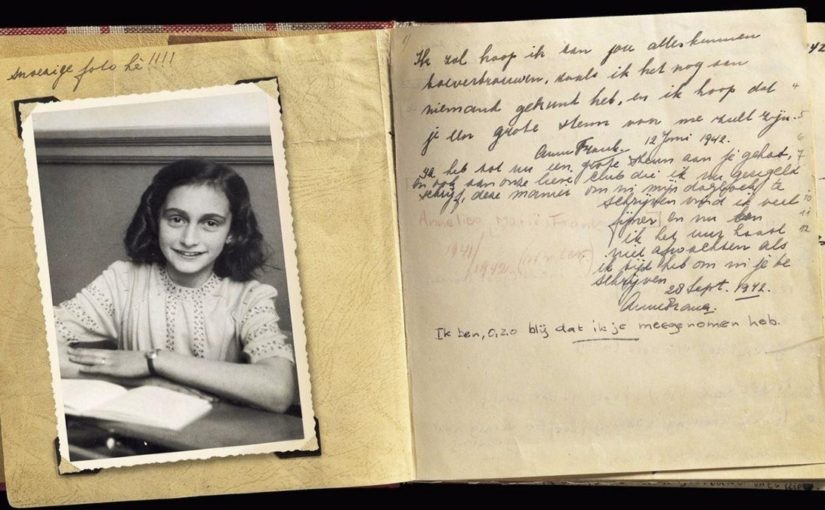 snoezige foto hè!!!!
Ik zal hoop ik aan jou alles kunnen
toevertrouwen, zoals ik het nog aan
niemand gekund heb, en ik hoop dat
je een grote steun van me zult zijn.
Anne Frank. 12 Juni 1942.
Ik heb tot nu een grote steun aan je gehad,
en ook aan onze lieve club die ik nu geregeld
schrijf, deze manier om in mijn dagboek te
schrijven vind ik veel
fijner en nu kan
ik het uur haast
niet afwachten als
ik tijd heb om in je te
schrijven
28 Sept. 1942.
Anne Frank.
Ik ben, o, zo blij dat ik je meegenomen heb.